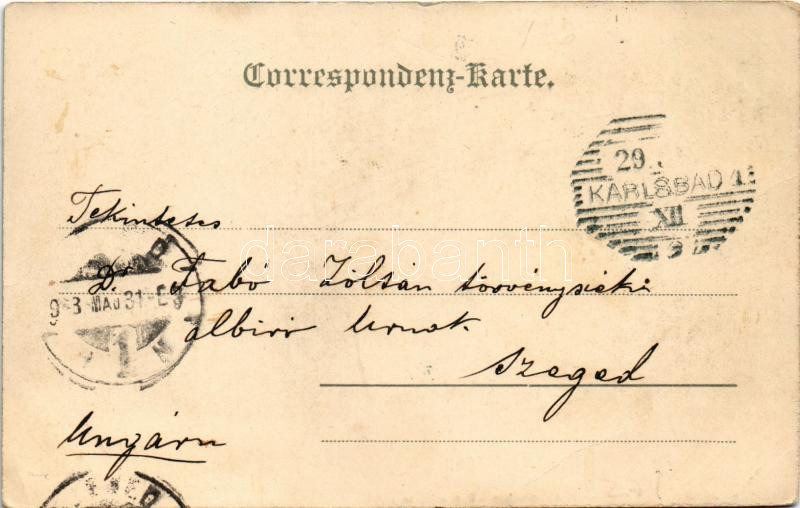 Correspondenz-Karte.
29.
KARLSBAD 1
XII
Tekintetes
Dr. Fabó Zoltán törvényszéki
albiró Urnak
Szeged
Ungárn
9-3 MAJ 31
darabanth